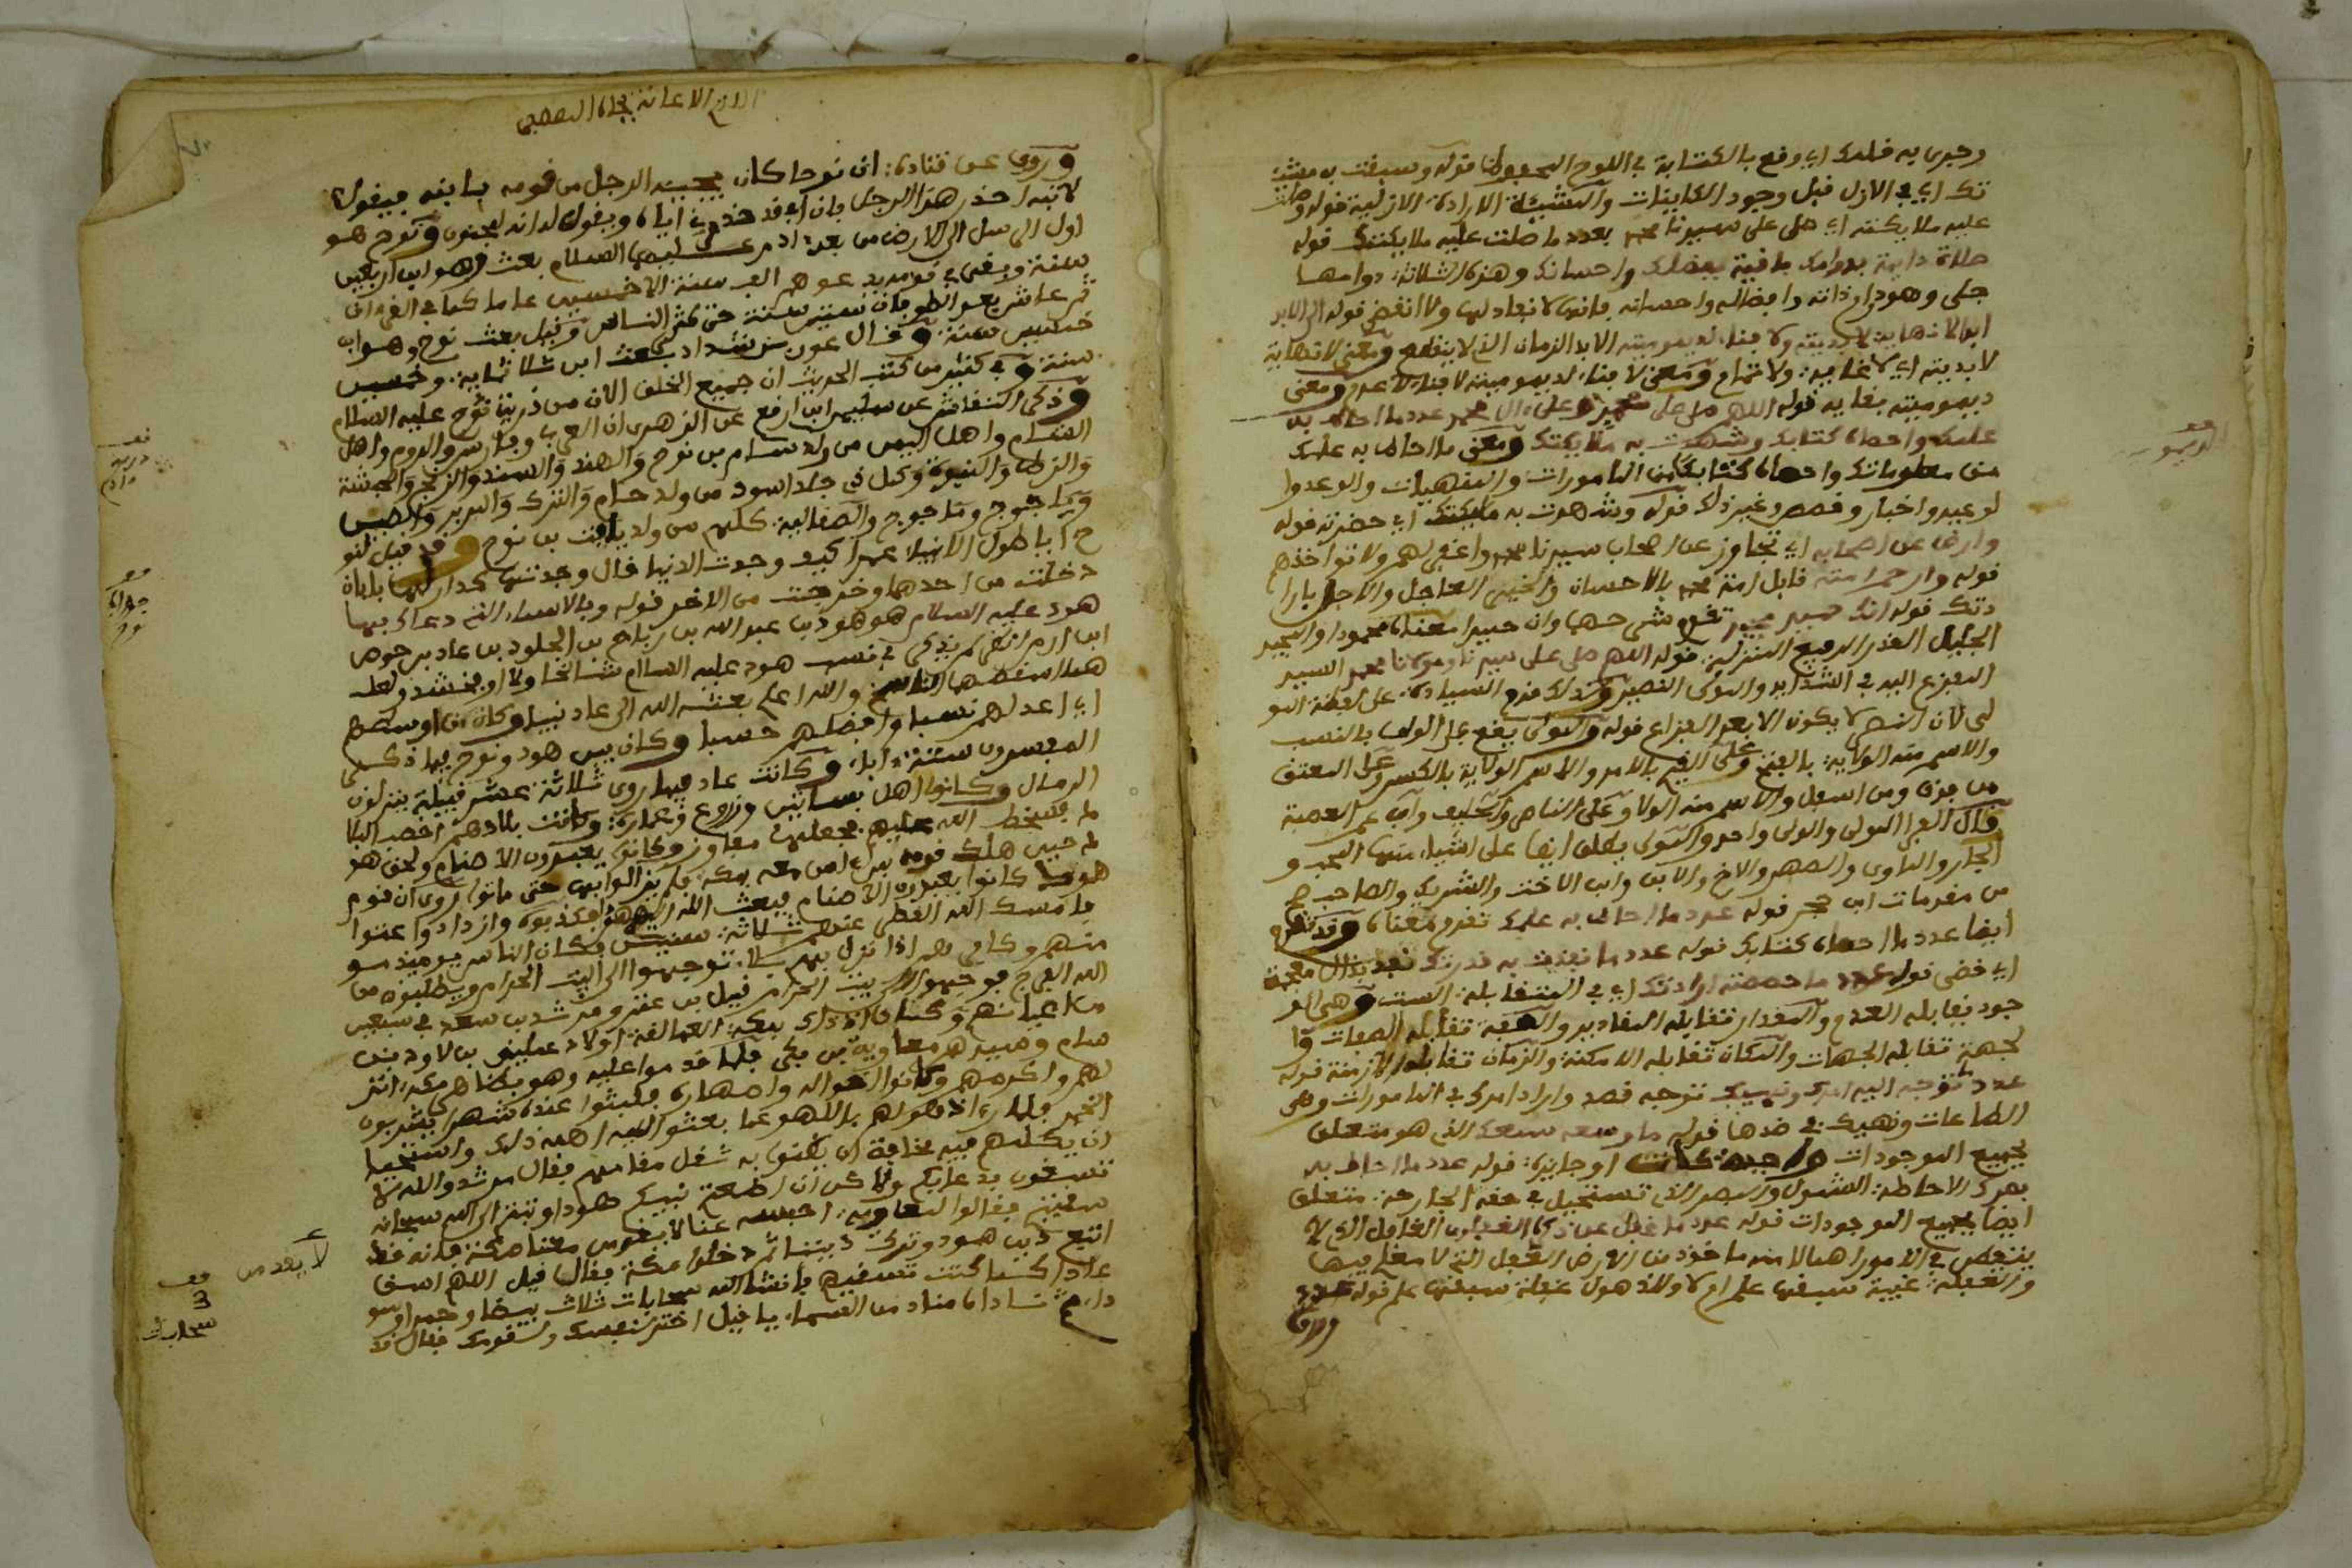 وجرى به قلمك اي وقع بالكتابة في اللوح المحفوظ قوله وسبقت به مشيئـ
تك اي في الازل قبل وجود الكاينات والمشيئة الارادة الازلية قوله وصلت
عليه ملايكته اي صل على سيدنا محمد بعدد ما صلت عليه ملايكتك قوله
صلاة دايمة بدوامك باقية بفضلك واحسانك وهذه الثلاثة دوامها
جلي وهو دوام ذاته وافضاله واحسانه فانها لا نفاد لها ولا انقضى قوله الى الابد
ابدا لا نهاية لابديته ولا فناء لديموميته الابد الزمان الذي لا ينقطع ومعنى لا نهاية
لابديته اي لا غاية ولا تمام ومعنى لا فناء لديموميته لا فناء لا عدم ومعنى
ديموميته بقايه قوله اللهم صل على محمد وعلى ال محمد عدد ما احاط به
علمك واحصاه كتابك وشهدت به ملايكتك ومعنى ما احاط به علمك
من معلوماتك واحصاه كتابك من المامورات والمنهيات والوعد وا
لوعيد واخبار وقصص وغير ذلك قوله وشهدت به ملايكتك اي حضرته قوله
وارض عن اصحابه اي تجاوز عن اصحاب سيدنا محمد واغفر لهم ولا تواخذهم
قوله وارحم امته قابل امة محمد بالاحسان والخير العاجل والاجل بارا
دتك قوله انك حميد مجيد تقدم شرحها وان حميدا معناه محمودا والمجيد
الجليل القدر الرفيع المنزلة قوله اللهم صل على سيدنا ومولانا محمد السيد
المفزع اليه في الشدايد والمولى النصير ولذلك قدم السيادة على لفظة المو
لى لان النصر لا يكون الا بعد الفزاع قوله والمولى يقع على الولي بالنسب
والاسم منه الولاية بالفتح وعلى القيم بالامر والاسم الولاية بالكسر وعلى المعتق
من فوق ومن اسفل والاسم منه الولا وعلى الناصر والحليف وابن عم العصبة
وقال الفرا المولى والولي واحد والمولى يطلق ايضا على اشياء منها المحب و
الجار والماوى والصهر والاخ والابن وابن الاخت والشريك والصاحب
من مقدمات ابن حجر قوله عدد ما احاط به علمك تقدم معناه وقد تقدم
ايضا عدد ما احصاه كتابك قوله عدد ما نفذت به قدرتك نفذ بذال معجمة
اي قضى قوله عدد ما خصصته ارادتك اي في المتقابلة الست وهي الو
جود يقابله العدم والمقدار تقابله المقادير والصفة تقابله الصفات وا
لجهة تقابله الجهات والمكان تقابله الامكنة والزمان تقابله الازمنة قوله
عدد ما توجه اليه امرك ونهيك توجه قصد واراد امرك في المامورات وهي
الطاعات ونهيك في ضدها قوله ما وسعه سمعك الذي هو متعلق
بجميع الموجودات واجبة كانت او جايزة قوله عدد ما احاط به
بصرك الاحاطة الشمول والبصر الذي تستحيل في حقه الجارحة متعلق
ايضا بجميع الموجودات قوله عدد ما غفل عن ذكره الغافلون الغافل الذي لا
يتفحص في الامور اهمالا منه ماخوذ من الارض الغفل التي لا معلم فيها
والغفلة غيبة سبقها علم ام لا والذهول غفلة سبقها علم قوله عدد
وروى عن قتادة ان نوحا كان يجيه الرجل من قومه بابنه فيقول
لابنه احذر هذا الرجل فان ابي قد حذرني اياه ويقول له انه لمجنون ونوح هو
اول الرسل الى الارض من بعد ادم عليهما السلام بعث وهو ابن اربعين
سنة وبقي في قومه يدعوهم الف سنة الا خمسين عاما كما في القرءان
ثم عاش بعد الطوفان ستين سنة حتى كثر الناس وقيل بعث نوح وهو ابن
خمسين سنة وقال عون بن شداد بعث ابن ثلاثماية وخمسين
سنة وفي كثير من كتب الحديث ان جميع الخلق الان من ذرية نوح عليه السلام
وذكر النقاش عن سليمان ابن ارقع عن الزهري ان العرب وفارس والروم واهل
الشام واهل اليمن من ولد سام بن نوح والهند والسند والزنج والحبشة
والزط والنوبة وكل ذي جلد اسود من ولد حام والترك والبربر والصين
وياجوج وماجوج والصقالبة كلهم من ولد يافث بن نوح وقد قيل لنو
ح ايا طول الانبياء عمرا كيف وجدت الدنيا قال وجدتها كدار لها بابان
دخلت من احدهما وخرجت من الاخر قوله وبالاسماء التي دعاك بها
هود عليه السلام هو هود بن عبد الله بن رباح بن الجلود بن عاد بن عوص
ابن ارم انتهى لم يذكر في نسب هود عليه السلام شالخا ولا ارفخشد ولعله
اي اعدلهم نسبا وافضلهم حسبا وكان بين هود ونوح فيما ذكر
المفسرون ستة اباء وكانت عاد فيما روى ثلاثة عشر قبيلة ينزلون
الرمال وكانوا اهل بساتين وزروع وعمارة وكانت بلادهم اخصب البلا
د فسخط الله عليهم فجعلها مفاوز وكانوا يعبدون الاصنام ولحق هو
د حين هلك قومه بمن ءامن معه بمكة فلم يزالوا بها حتى ماتوا روى ان قوم
هود كانوا يعبدون الاصنام فبعث الله اليهم هودا فكذبوه وازدادوا عتوا
فامسك الله القطر عنهم ثلاثة سنين وكان الناس يوميذ مسـ
منهم وكافرهم اذا نزل بهم بلاء توجهوا الى البيت الحرام ويطلبون من
الله الفرج فوجهوا الى بيت الحرام قيل بن عنز ومرثد بن سعد في سبعين
من اعيانهم وكان اذ ذاك بمكة العمالقة اولاد عمليق بن لاود بن
سام وسيدهم معاوية بن بكر فلما قدموا عليه وهو بظاهر مكة انز
لهم واكرمهم وكانوا اخواله واصهاره فلبثوا عنده شهرا يشربون
الخمر فلما رءا ذهولهم باللهو عما بعثوا اليه اهمه ذلك واستحيا
ان يكلمهم فيه مخافة ان يظنوا به ثقل مقامهم فقال مرثد والله لا
تسقون بدعايكم ولاكن ان اطعتم نبيكم هودا وتبتم الى الله سبحانه
سقيتم فقالوا لمعاوية احبسه عنا لا يقدمن معنا مكة فانه قد
اتبع دين هود وترك ديننا ثم دخلوا مكة فقال قيل اللهم اسق
عادا كما كنت تسقيهم فانشا الله سحابات ثلاث بيضا وحمرا وسو
داء ثم ناداه مناد من السماء يا قيل اختر لنفسك ولقومك فقال قد
سحابات